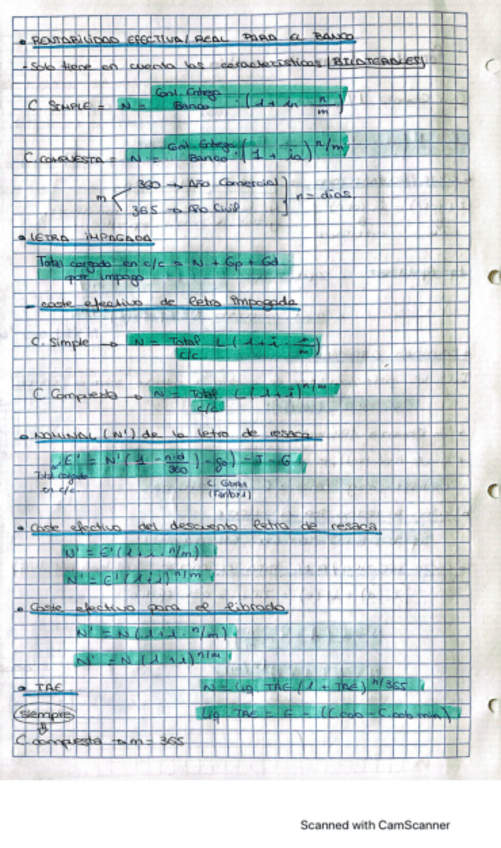 • RENTABILIDAD EFECTIVA/REAL PARA EL BANCO
- Solo tiene en cuenta las características (BILATERALES)
C SIMPLE = N = Cont. Entrega Banco · (1 + in n/m)
C. COMPUESTA = N = Cont. Entrega Banco · (1 + in)^n/m
m < 360 → Año Comercial
365 → Año Civil ] n = días
• LETRA IMPAGADA
Total cargado en c/c por impago = N + Gp + Gd
- coste efectivo de letra impagada
C. Simple → N = Total c/c (1 + i · n/m)
C Compuesta → N = Total c/c (1 + i)^n/m
• NOMINAL (N') de la letra de resaca
E' = N' (1 - n·d/360 - go) - T - G
Total cargado en c/c
• Coste efectivo del descuento letra de resaca
N' = E' (1 + i · n/m)
N' = E' (1 + i)^n/m
• Coste efectivo para el librado
N' = N (1 + i · n/m)
N' = N (1 + i)^n/m
• TAE
N = Liq TAE (1 + TAE)^n/365
(siempre)
Liq. TAE = E - (C.cob - C.cob min)
C. compuesta → m = 365
Scanned with CamScanner